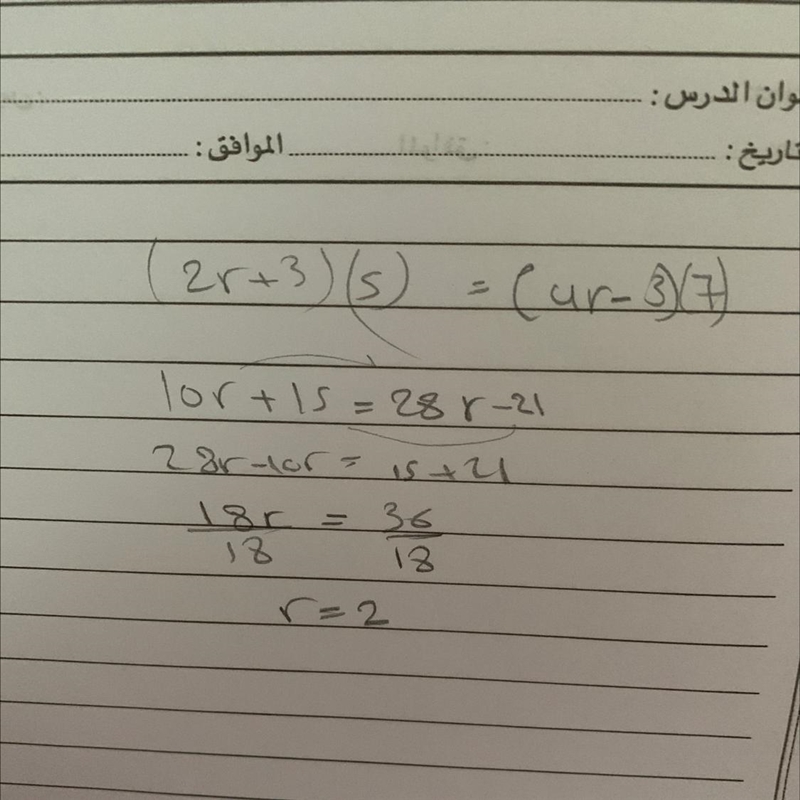 وان الدرس :
تاريخ : الموافق :
(2r+3)(5) = (4r-3)(7)
10r+15=28r-21
28r-10r=15+21
18r/18 = 36/18
r=2